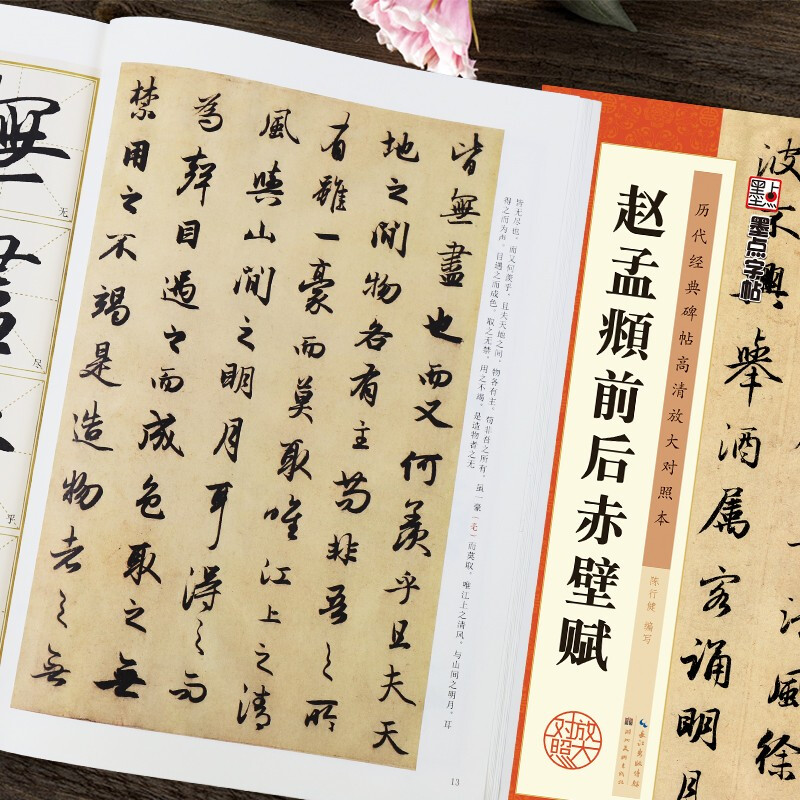 無
无
尽
乎
皆無盡也而又何羨乎且夫天
地之間物各有主苟非吾之所
有雖一豪而莫取唯江上之清
風與山間之明月耳得之而
為聲目遇之而成色取之無
禁用之不竭是造物者之無
皆无尽也，而又何羡乎，且夫天地之间，物各有主。苟非吾之所有，虽一豪（毛）而莫取。唯江上之清风，与山间之明月，耳
得之而为声，目遇之而成色，取之无禁，用之不竭，是造物者之无
13
墨点
墨点字帖
历代经典碑帖高清放大对照本
赵孟頫前后赤壁赋
陈行健 编写
放大对照
长江出版传媒
湖北美术出版社
清風徐
波不興舉酒属客誦明月